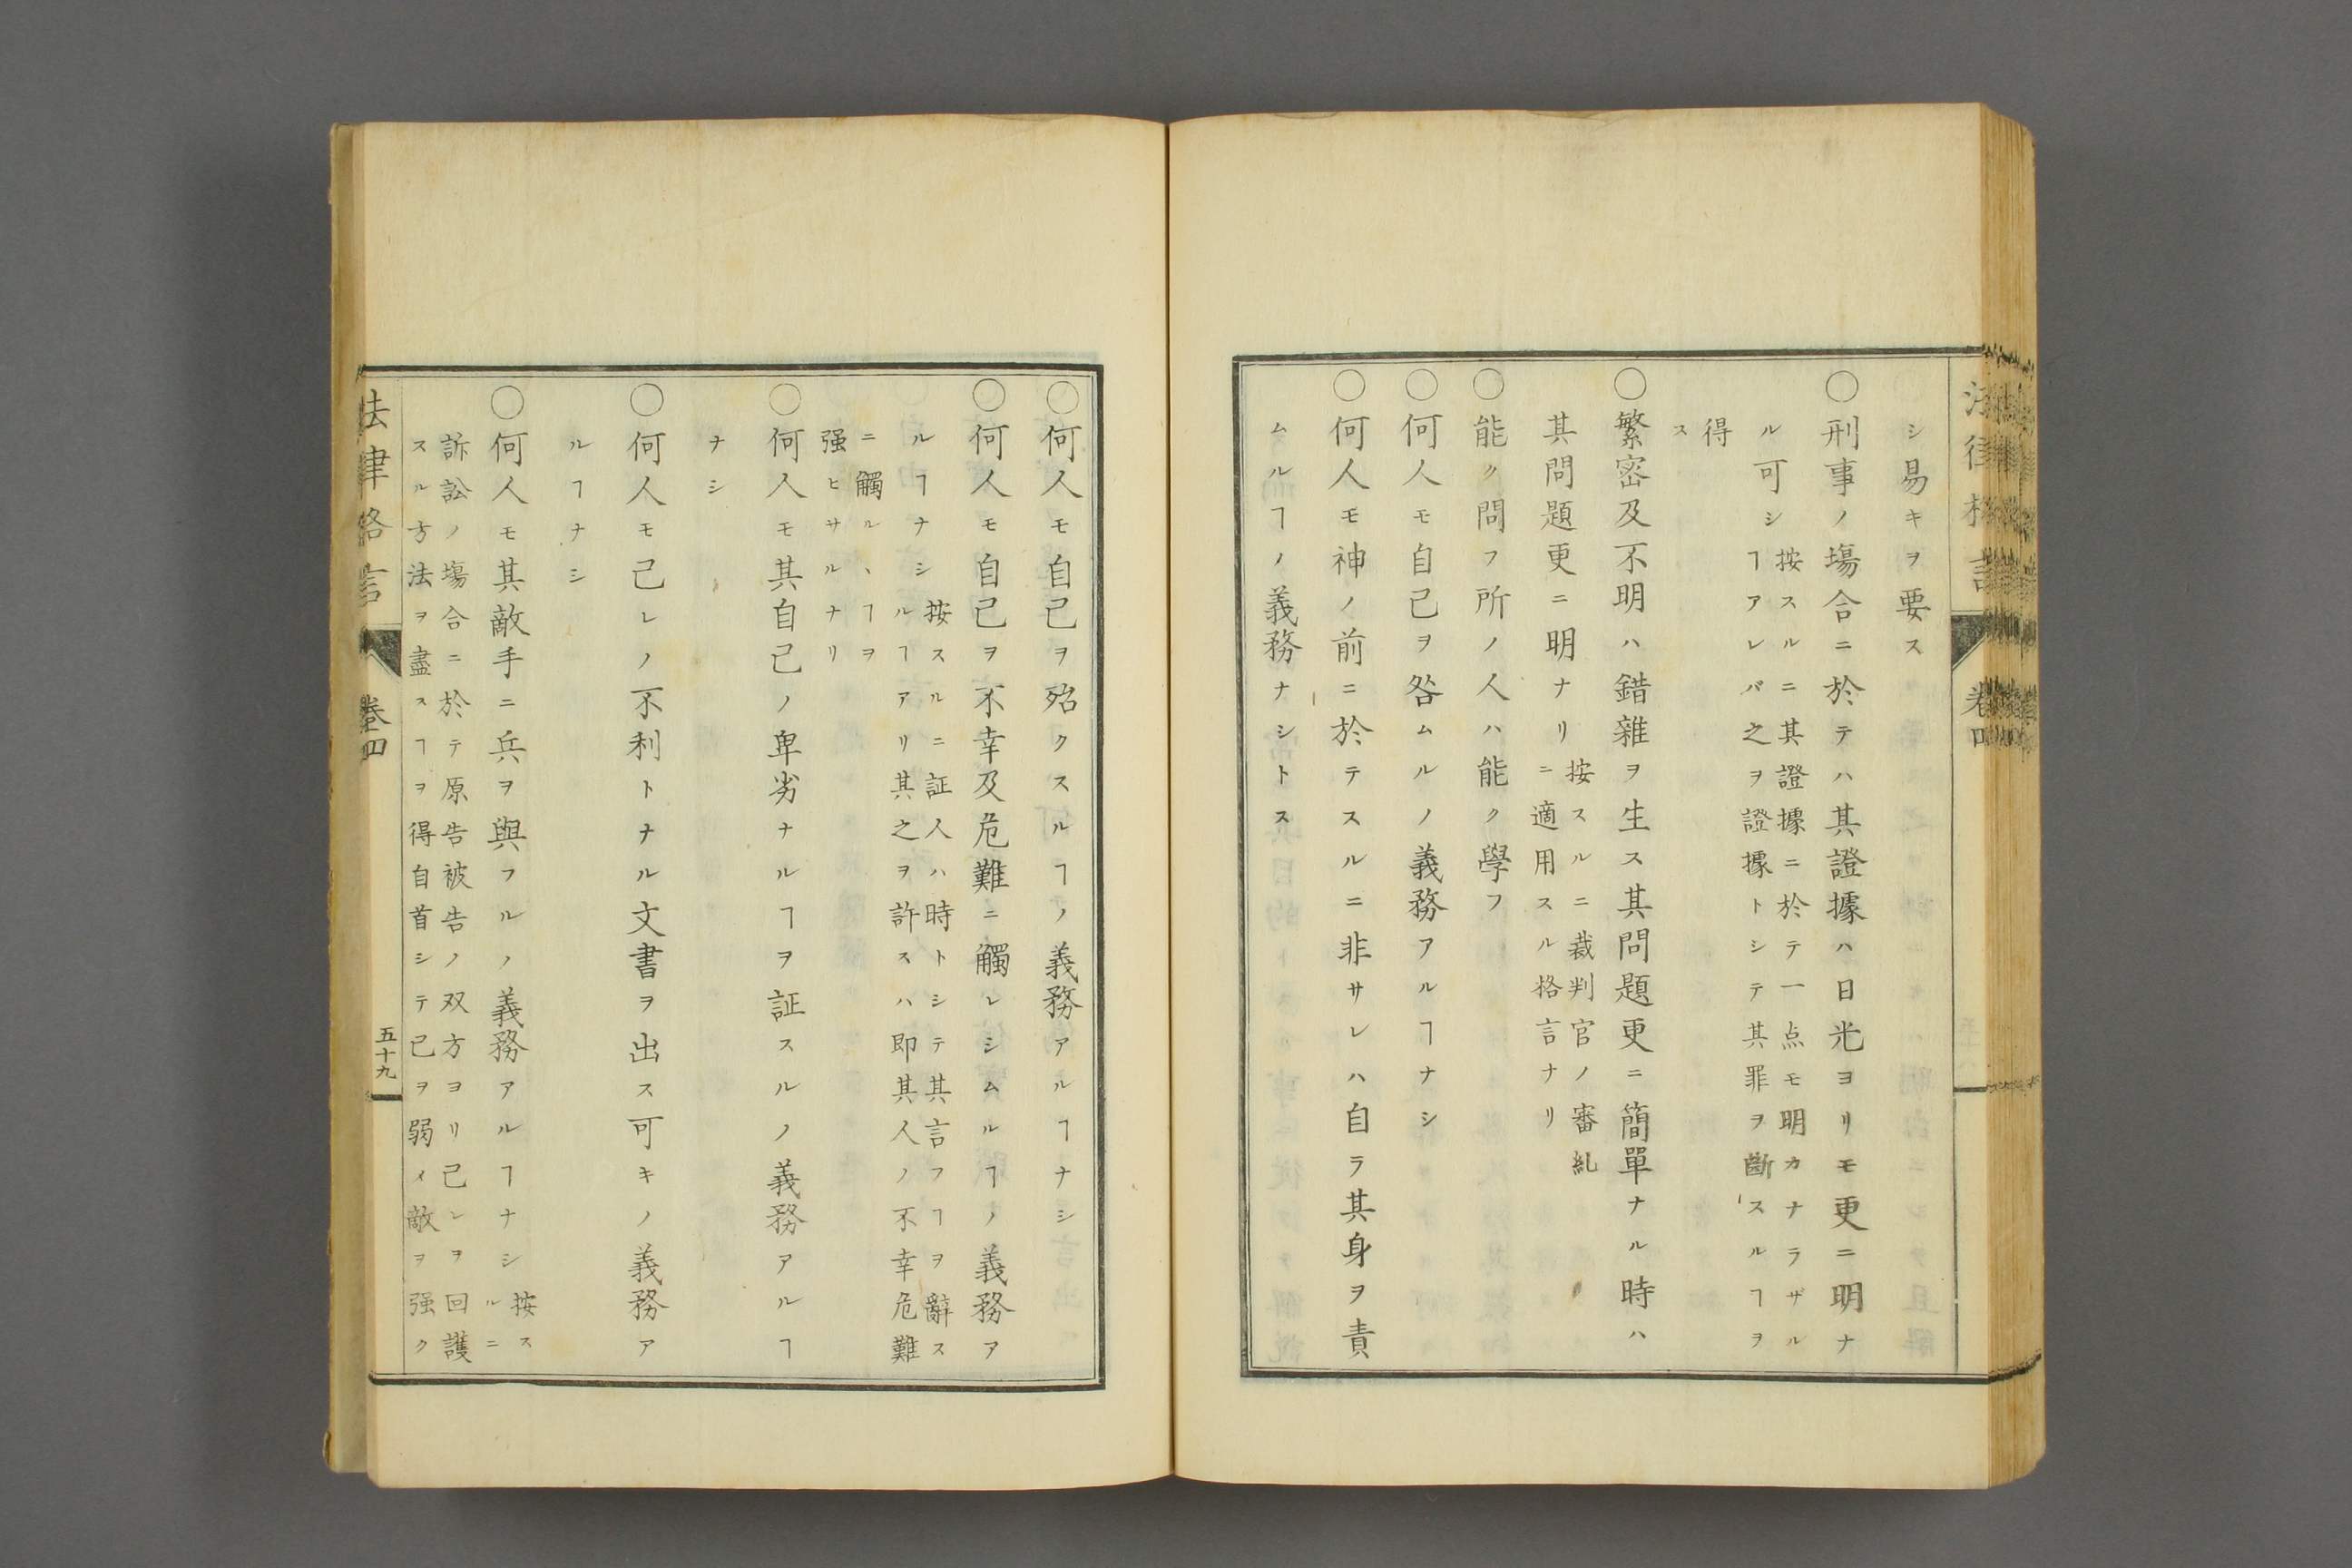 シ易キヲ要ス
○刑事ノ塲合ニ於テハ其證據ハ日光ヨリモ更ニ明ナ
ル可シ
按スルニ其證據ニ於テ一点モ明カナラザル
ヿアレバ之ヲ證據トシテ其罪ヲ斷スルヿヲ
得
ス
○繁密及不明ハ錯雜ヲ生ス其問題更ニ簡單ナル時ハ
其問題更ニ明ナリ
按スルニ裁判官ノ審糺
ニ適用スル格言ナリ
○能ク問フ所ノ人ハ能ク學フ
○何人モ自己ヲ咎ムルノ義務アルヿナシ
○何人モ神ノ前ニ於テスルニ非サレハ自ラ其身ヲ責
ムルヿノ義務ナシトス
卷四
○何人モ自己ヲ殆クスルヿノ義務アルヿナシ
○何人モ自己ヲ不幸及危難ニ觸レシムルヿノ義務ア
ルヿナシ
按スルニ証人ハ時トシテ其言フヿヲ辭ス
ルヿアリ其之ヲ許スハ即其人ノ不幸危難
ニ觸ルヽヿヲ
强ヒサルナリ
○何人モ其自己ノ卑劣ナルヿヲ証スルノ義務アルヿ
ナシ
○何人モ己レノ不利トナル文書ヲ出ス可キノ義務ア
ルヿナシ
○何人モ其敵手ニ兵ヲ與フルノ義務アルヿナシ
按ス
ルニ
訴訟ノ塲合ニ於テ原告被告ノ双方ヨリ己レヲ回護
スル方法ヲ盡スヿヲ得自首シテ己ヲ弱イ敵ヲ强ク
法律格言
卷四
五十九